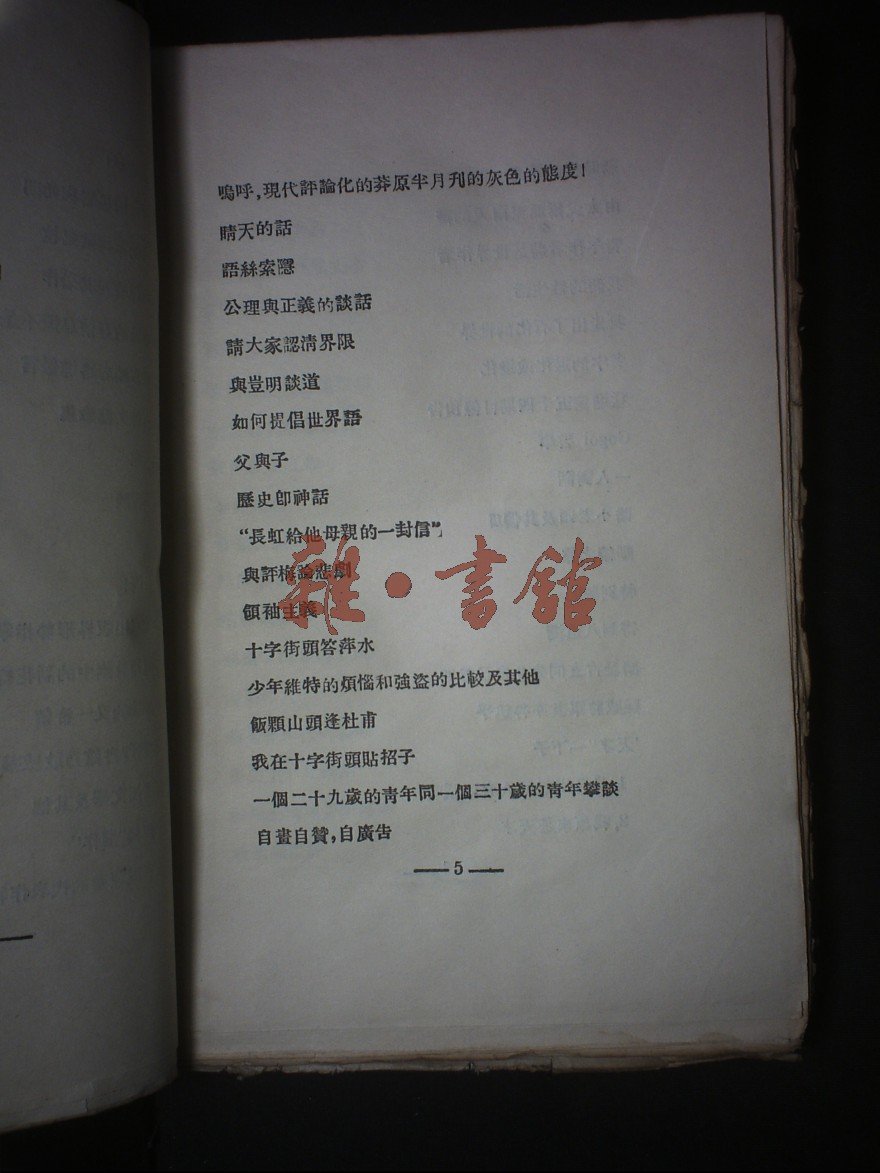 嗚呼,現代評論化的莽原半月刊的灰色的態度!
晴天的話
語絲索隱
公理與正義的談話
請大家認淸界限
與豈明談道
如何提倡世界語
父與子
歷史卽神話
“長虹給他母親的一封信”
與評梅論悲劇
領袖主義
十字街頭答萍水
少年維特的煩惱和強盜的比較及其他
飯顆山頭逢杜甫
我在十字街頭貼招子
一個二十九歲的靑年同一個三十歲的靑年攀談
自畫自贊,自廣告
—5—
雜·書館